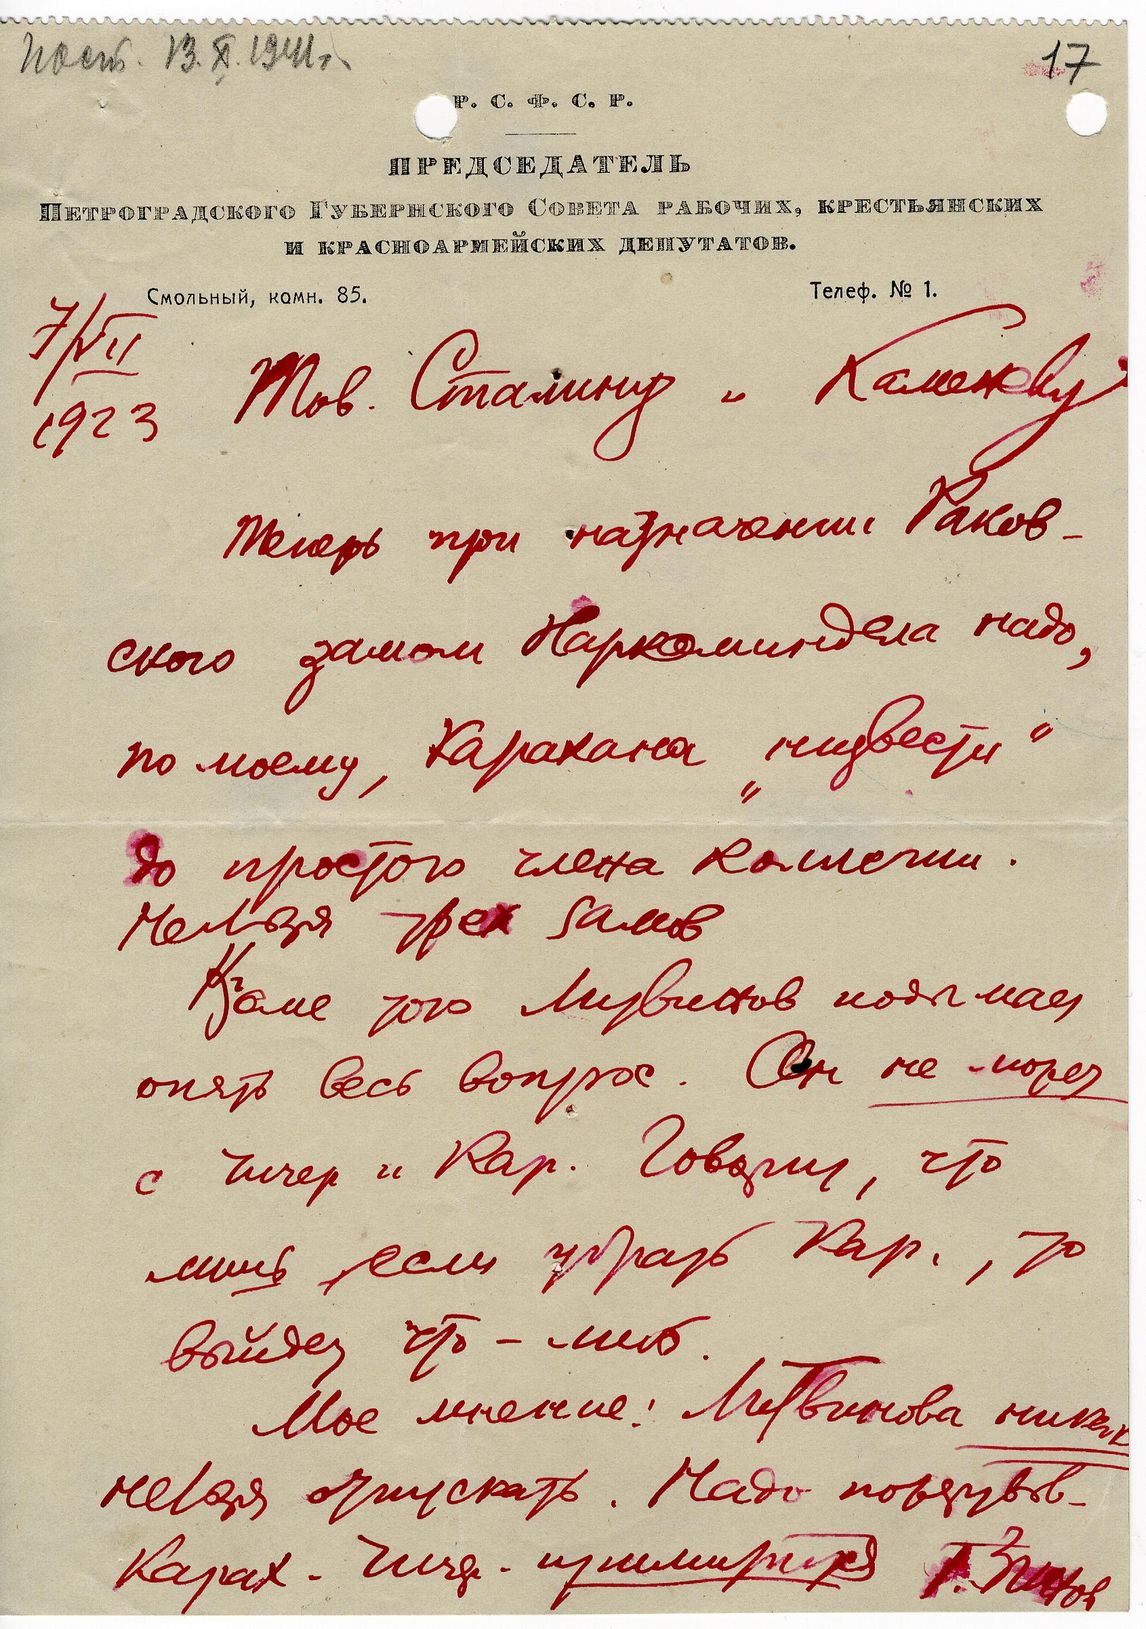 Пост. 13.X.1941г.
17
Р. С. Ф. С. Р.
ПРЕДСЕДАТЕЛЬ
ПЕТРОГРАДСКОГО ГУБЕРНСКОГО СОВЕТА РАБОЧИХ, КРЕСТЬЯНСКИХ
И КРАСНОАРМЕЙСКИХ ДЕПУТАТОВ.
Смольный, комн. 85. Телеф. № 1.
7/VII
1923
Тов. Сталину и Каменеву
Теперь при назначении Раков-
ского замом Наркоминдела надо,
по моему, Карахана „низвести"
до простого члена коллегии.
Нельзя трех замов
Кроме того Литвинов подымает
опять весь вопрос. Он не может
с Чичер и Кар. Говорит, что
лишь если убрать Кар., то
выйдет что-либ.
Мое мнение: Литвинова никак
нельзя отпускать. Надо
Карах. Чиче. примирится Г. Зинов